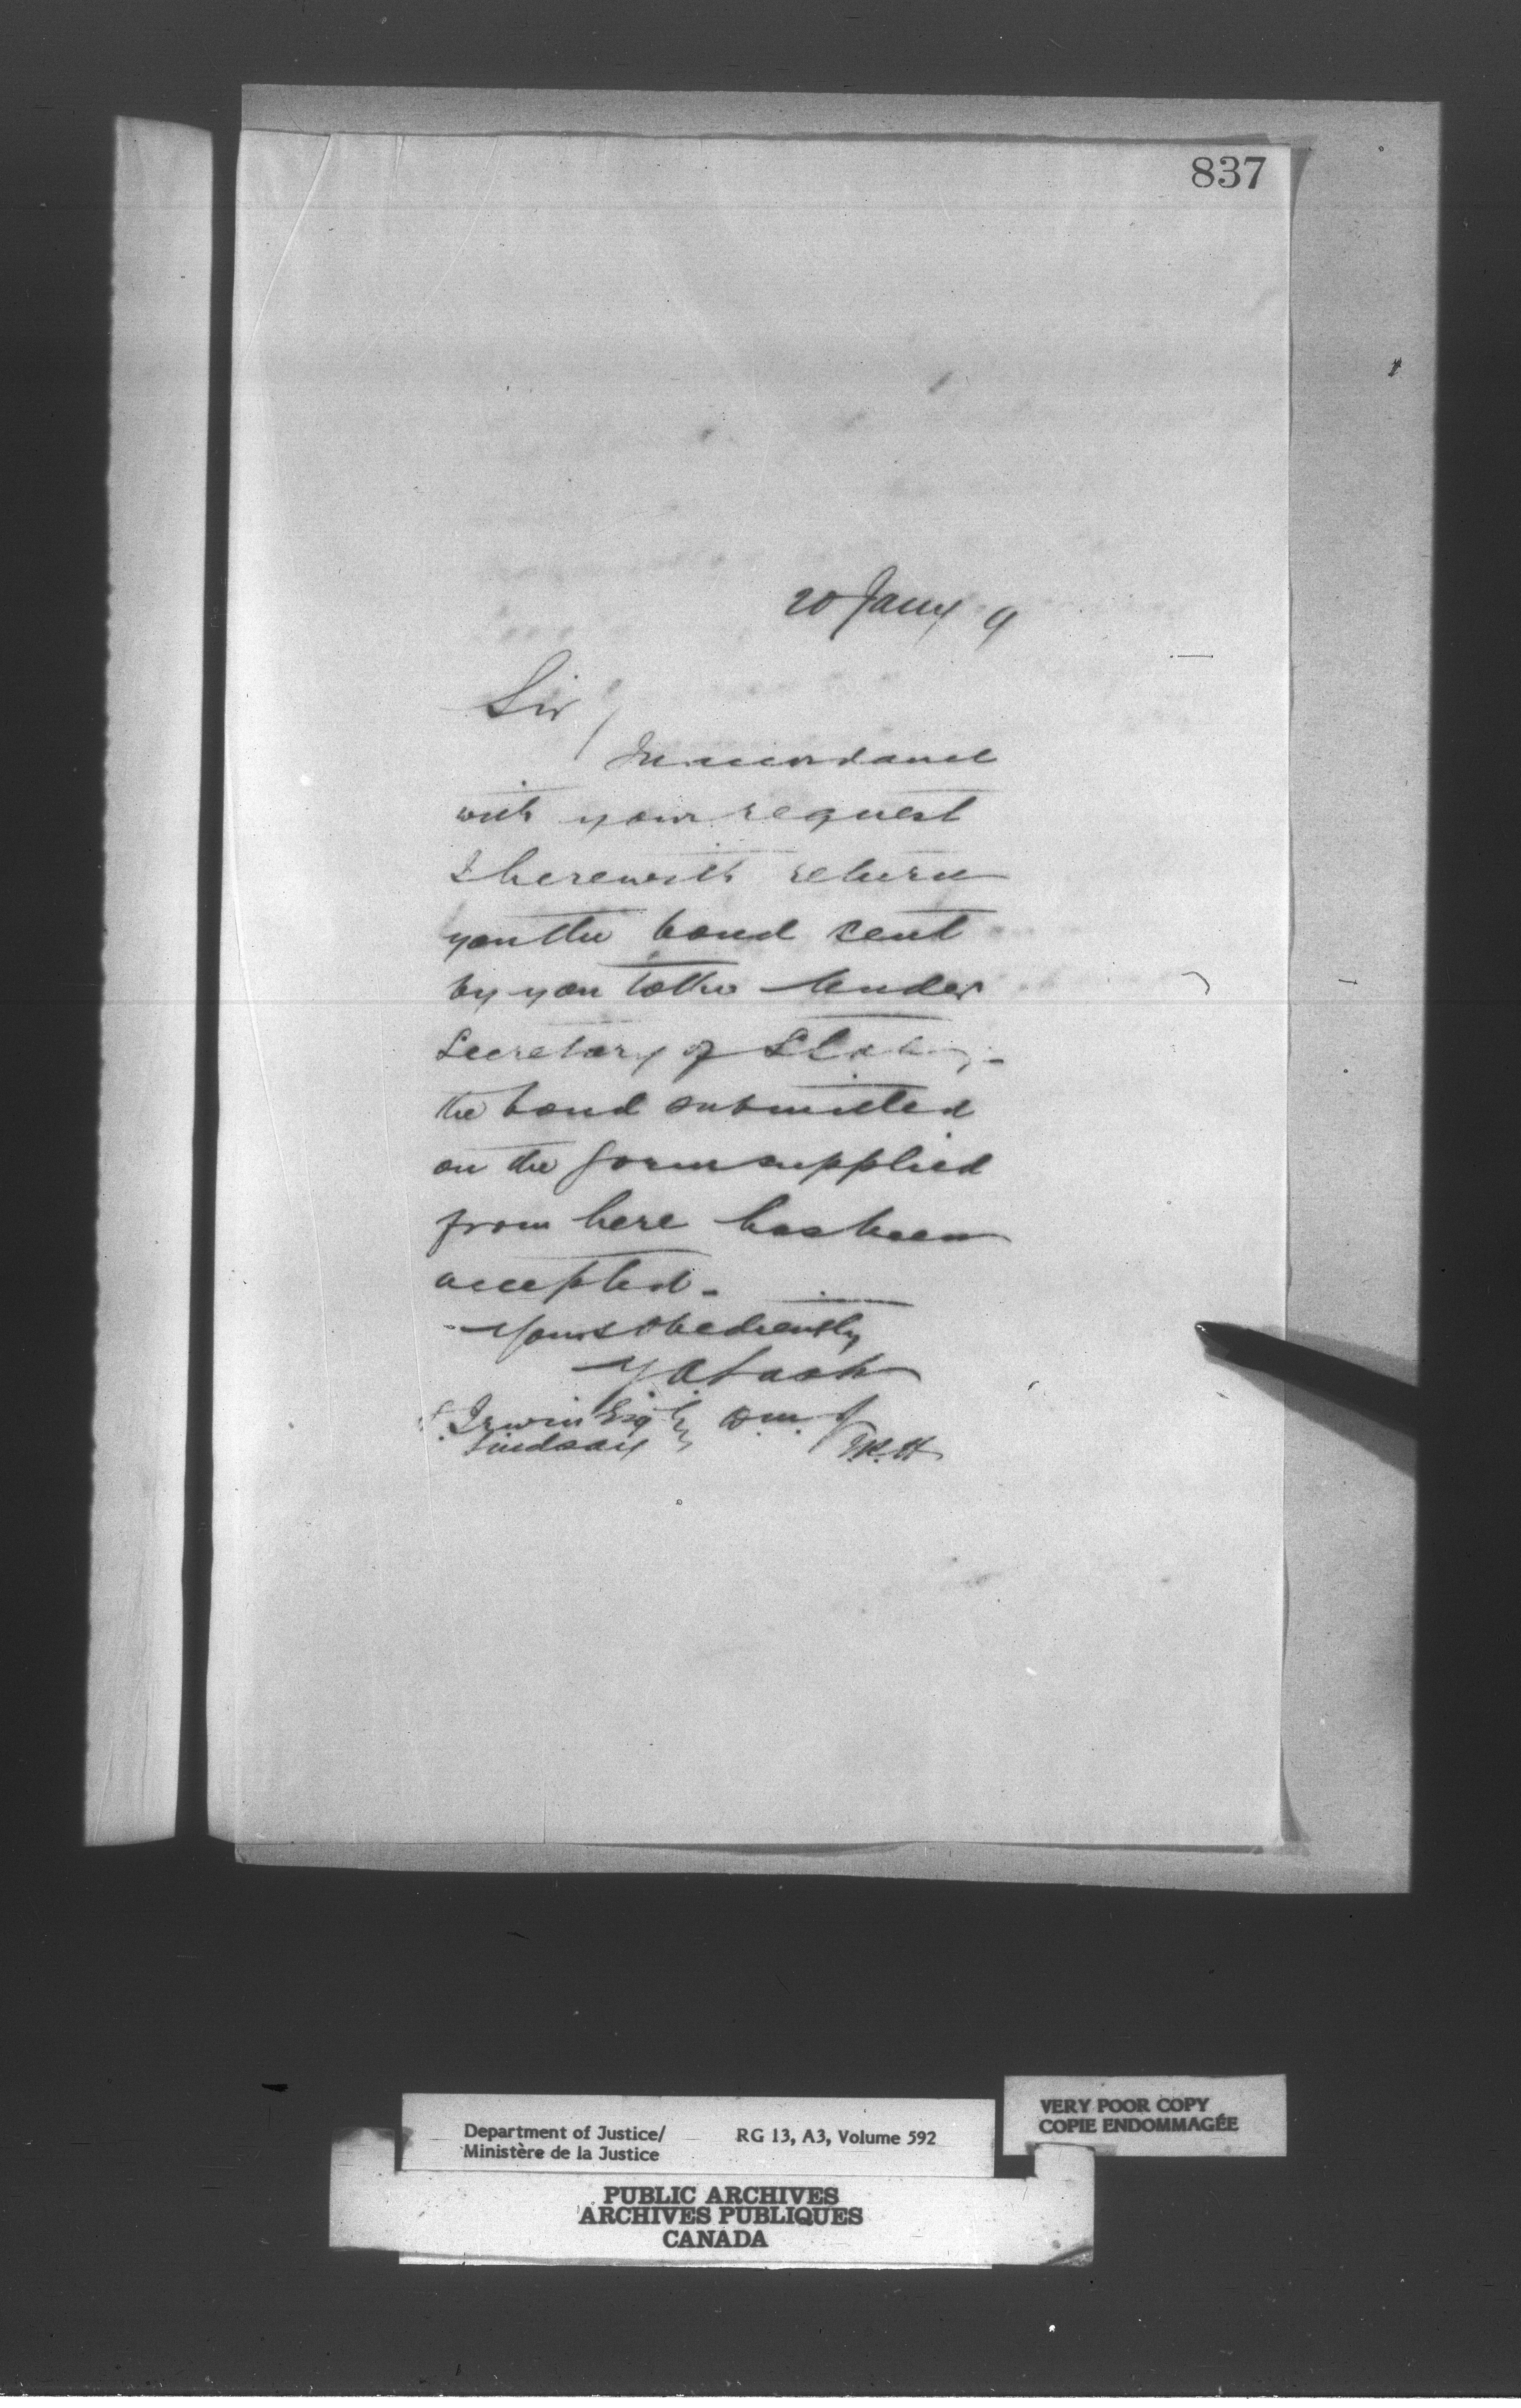 837
20 Jany 9
Sir
In accordance
with your request
I herewith return
you the bond sent
by you to the Under
Secretary of State,-
the bond submitted
on the form supplied
from here has been
accepted.
Yours obediently
Z A Lash
Irwin Esq D.M.J
Lindsay
Department of Justice/ RG 13, A3, Volume 592
Ministère de la Justice
VERY POOR COPY
COPIE ENDOMMAGÉE
PUBLIC ARCHIVES
ARCHIVES PUBLIQUES
CANADA